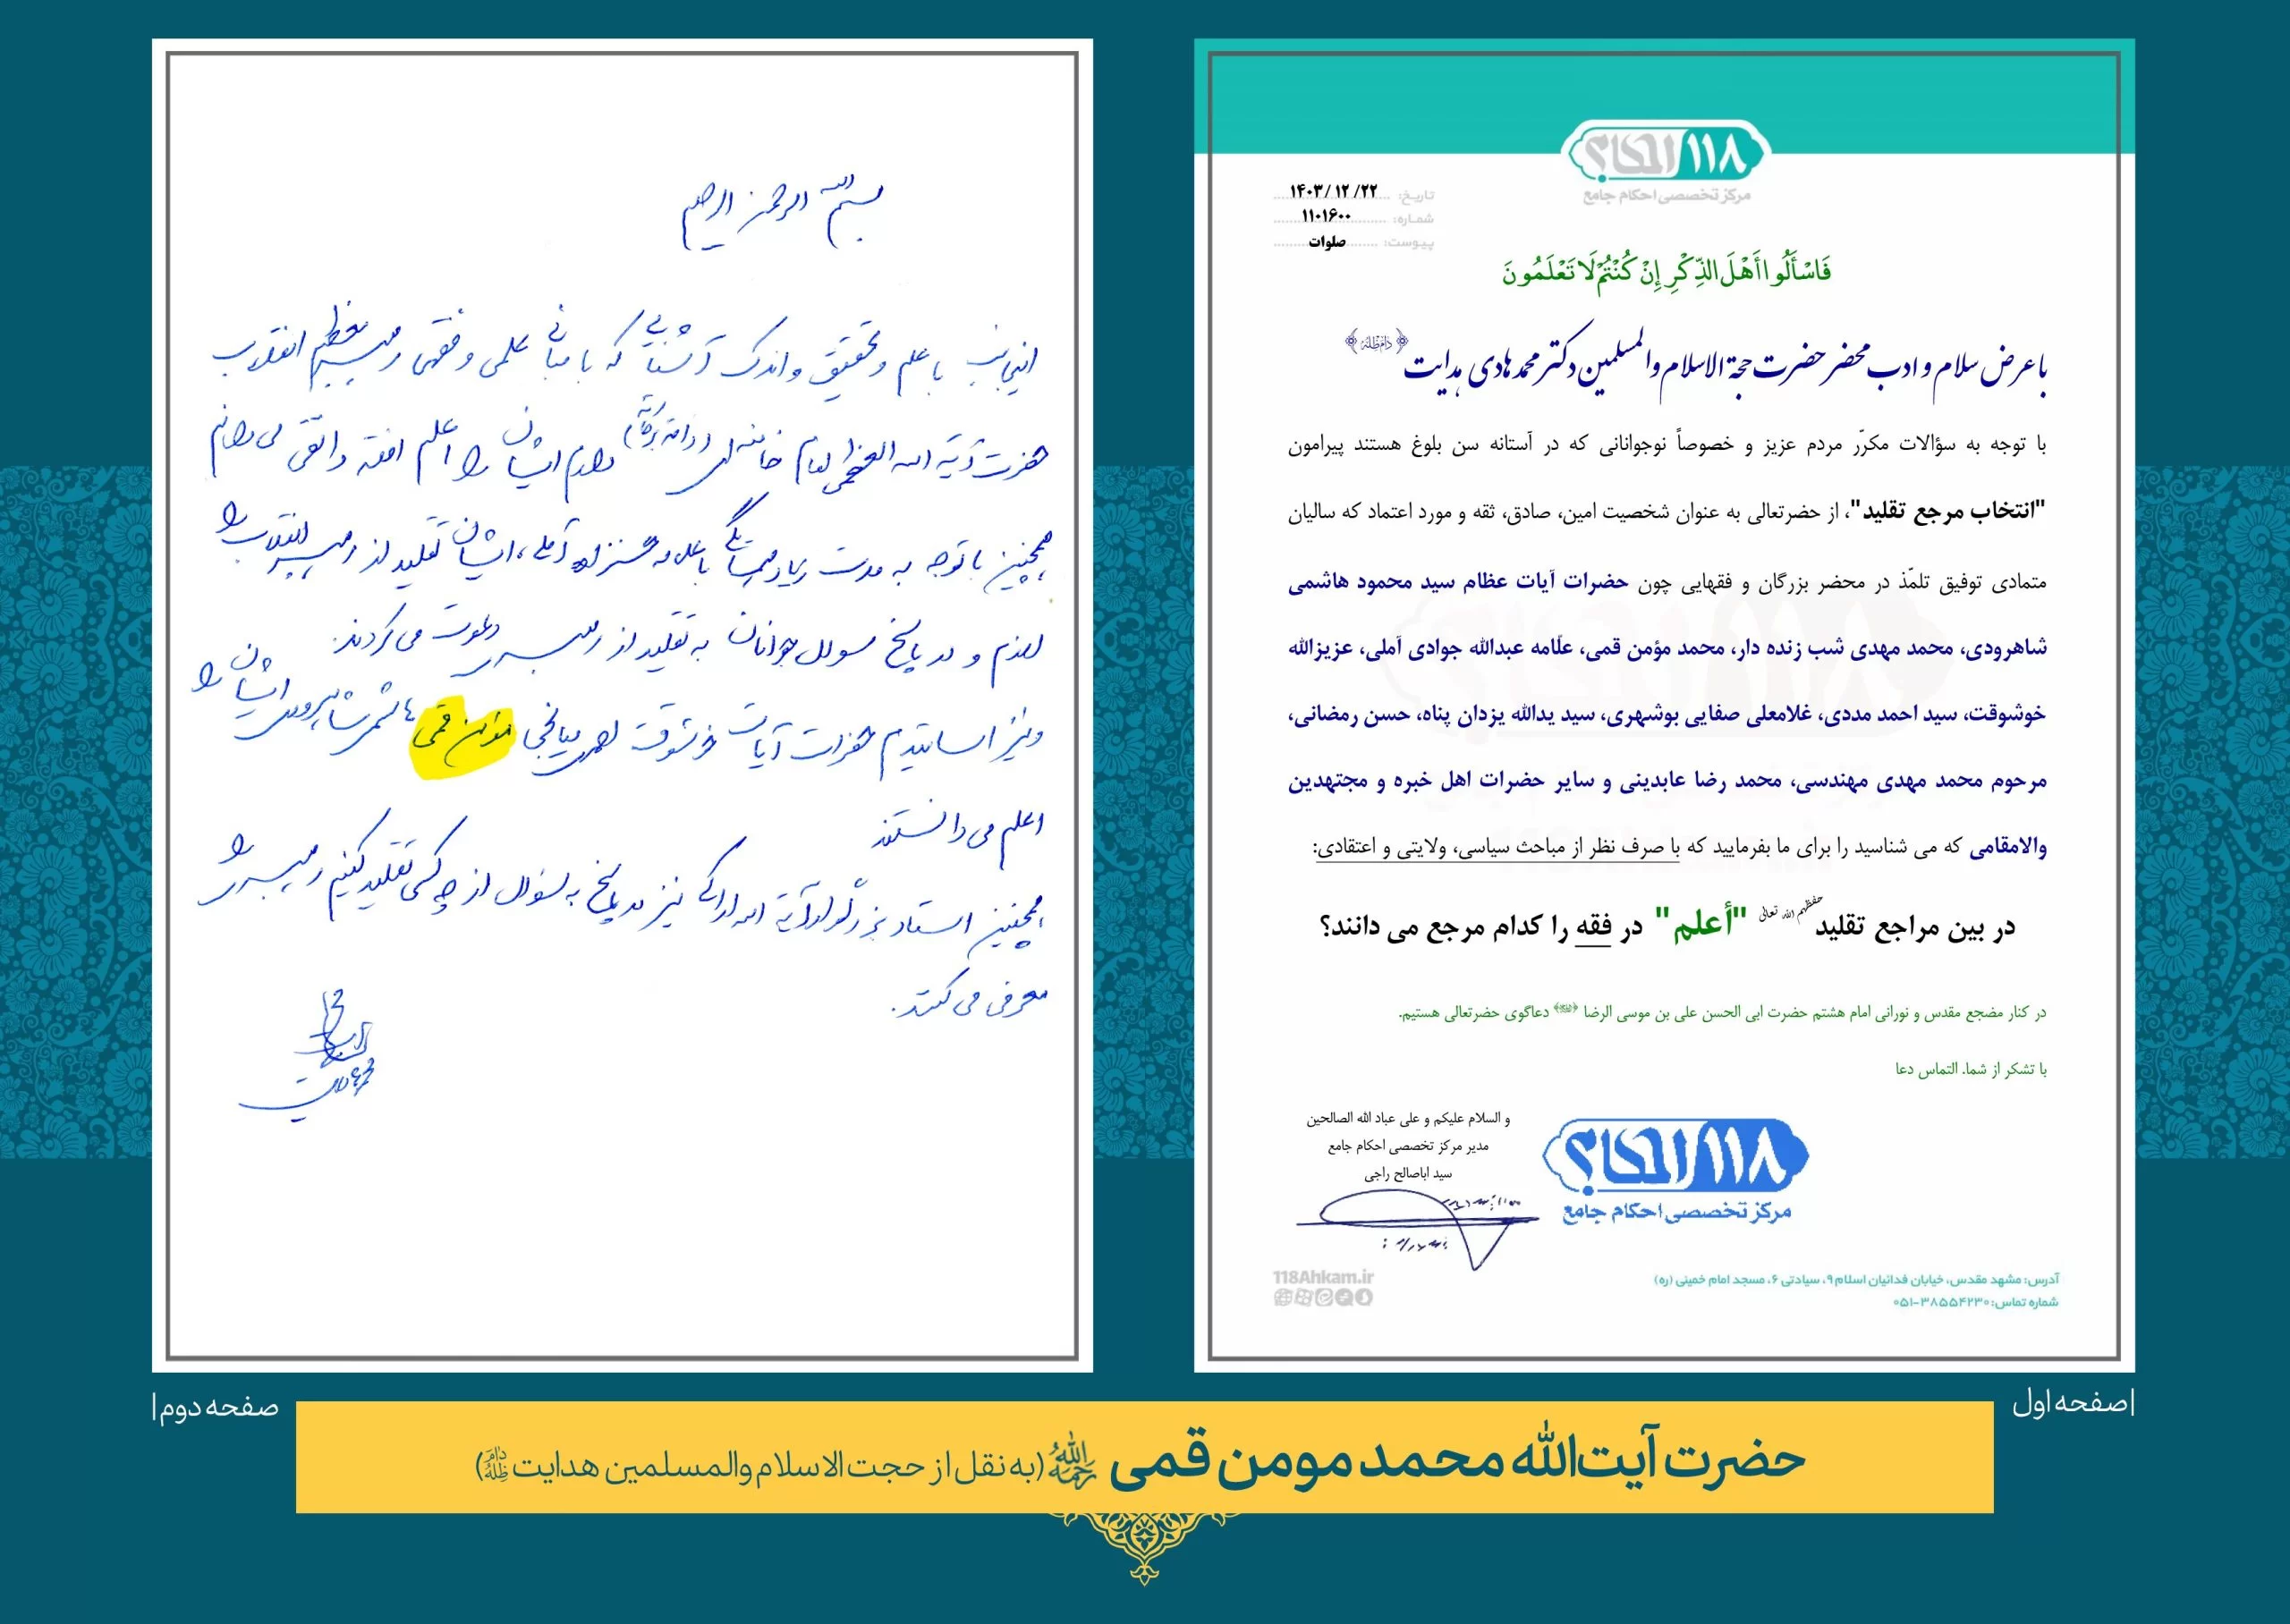 ۱۱۸ احکام
مرکز تخصصی احکام جامع
تاریخ: ۱۴۰۳/ ۱۲ /۲۲
شماره: ۱۱۰۱۶۰۰
پیوست: صلوات
فَاسْأَلُوا أَهْلَ الذِّكْرِ إِنْ كُنْتُمْ لَا تَعْلَمُونَ
با عرض سلام و ادب محضر حضرت حجة الاسلام والمسلمین دکتر محمد هادی هدایت ﴿دام ظله﴾
با توجه به سؤالات مکرّر مردم عزیز و خصوصاً نوجوانانی که در آستانه سن بلوغ هستند پیرامون
"انتخاب مرجع تقلید"، از حضرتعالی به عنوان شخصیت امین، صادق، ثقه و مورد اعتماد که سالیان
متمادی توفیق تلمّذ در محضر بزرگان و فقهایی چون حضرات آیات عظام سید محمود هاشمی
شاهرودی، محمد مهدی شب زنده دار، محمد مؤمن قمی، علّامه عبدالله جوادی آملی، عزیزالله
خوشوقت، سید احمد مددی، غلامعلی صفایی بوشهری، سید یدالله یزدان پناه، حسن رمضانی،
مرحوم محمد مهدی مهندسی، محمد رضا عابدینی و سایر حضرات اهل خبره و مجتهدین
والامقامی که می شناسید را برای ما بفرمایید که با صرف نظر از مباحث سیاسی، ولایتی و اعتقادی:
در بین مراجع تقلید حفظهم الله تعالی "أعلم" در فقه را کدام مرجع می دانند؟
در کنار مضجع مقدس و نورانی امام هشتم حضرت ابی الحسن علی بن موسی الرضا دعاگوی حضرتعالی هستیم.
با تشکر از شما. التماس دعا
و السلام علیکم و علی عباد الله الصالحین
مدیر مرکز تخصصی احکام جامع
سید اباصالح راجی
۱۱۸ احکام
مرکز تخصصی احکام جامع
118Ahkam.ir
آدرس: مشهد مقدس، خیابان فدائیان اسلام ۹، سیادتی ۶، مسجد امام خمینی (ره)
شماره تماس: ۳۸۵۵۴۲۳۰-۰۵۱
|صفحه اول
بسم الله الرحمن الرحیم
اینجانب با علم و تحقیق و اندک آشنایی که با مبانی علمی و فقهی رهبر معظم انقلاب
حضرت آیة الله العظمی امام خامنه ای (دامت برکاته) دارم ایشان را اعلم افقه و اتقی می دانم
همچنین با توجه به مدت زیاد همسایگی با علامه حسن زاده آملی، ایشان تقلید از رهبر انقلاب را
لازم و در پاسخ سوال جوانان به تقلید از رهبری دعوت می کردند.
و نیز اساتیدم حضرات آیات خوشوقت احمدی میانجی مومن قمی هاشمی شاهرودی ایشان را
اعلم می دانستند
همچنین استاد بزرگوار آیة الله اراکی نیز در پاسخ به سئوال از چه کسی تقلید کنیم رهبری را
معرفی می کنند.
صفحه دوم|
حضرت آیت‌الله محمد مومن قمی رحمه الله (به نقل از حجت الاسلام والمسلمین هدایت دام ظله)